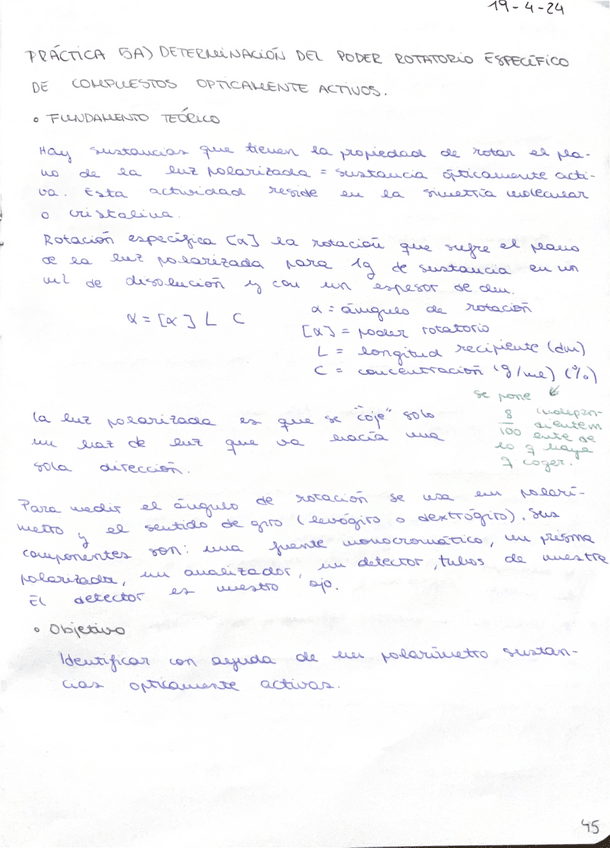 19-4-24
PRÁCTICA 5A) DETERMINACIÓN DEL PODER ROTATORIO ESPECÍFICO
DE COMPUESTOS OPTICAMENTE ACTIVOS.
• FUNDAMENTO TEÓRICO
Hay sustancias que tienen la propiedad de rotar el pla-
no de la luz polarizada = sustancia ópticamente acti-
va. Esta actividad reside en la simetría molecular
o cristalina.
Rotación específica [α] la rotación que sufre el plano
de la luz polarizada para 1g de sustancia en un
ml de disolución y con un espesor de dm.
α = [α] L C
α = ángulo de rotación
[α] = poder rotatorio
L = longitud recipiente (dm)
C = concentración (g/ml) (%)
se pone
8/100 independientemente de
lo q haya
q coger.
La luz polarizada es que se "coje" solo
un haz de luz que va hacia una
sola dirección.
Para medir el ángulo de rotación se usa un polarí-
metro y el sentido de giro (levógiro o dextrógiro). Sus
componentes son: una fuente monocromático, un prisma
polarizador, un analizador, un detector, tubos de muestra
El detector es nuestro ojo.
• Objetivo
Identificar con ayuda de un polarímetro sustan-
cias opticamente activas.
45